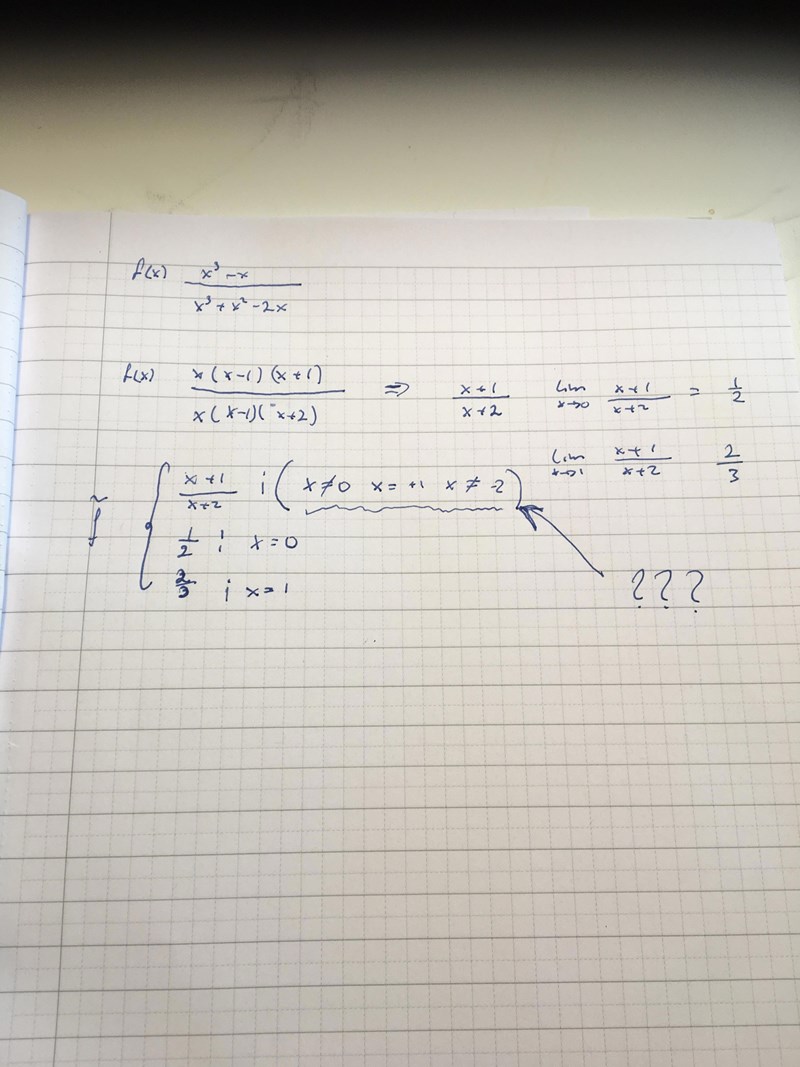 f(x) x³ - x / x³ + x² - 2x
f(x) x(x-1)(x+1) / x(x-1)(x+2) ⇒ x+1 / x+2 lim x→0 x+1 / x+2 = 1/2
lim x→1 x+1 / x+2 2/3
f̃ { x+1 / x+2 ; (x≠0 x= +1 x≠ -2)
1/2 ; x=0
2/3 ; x=1
???